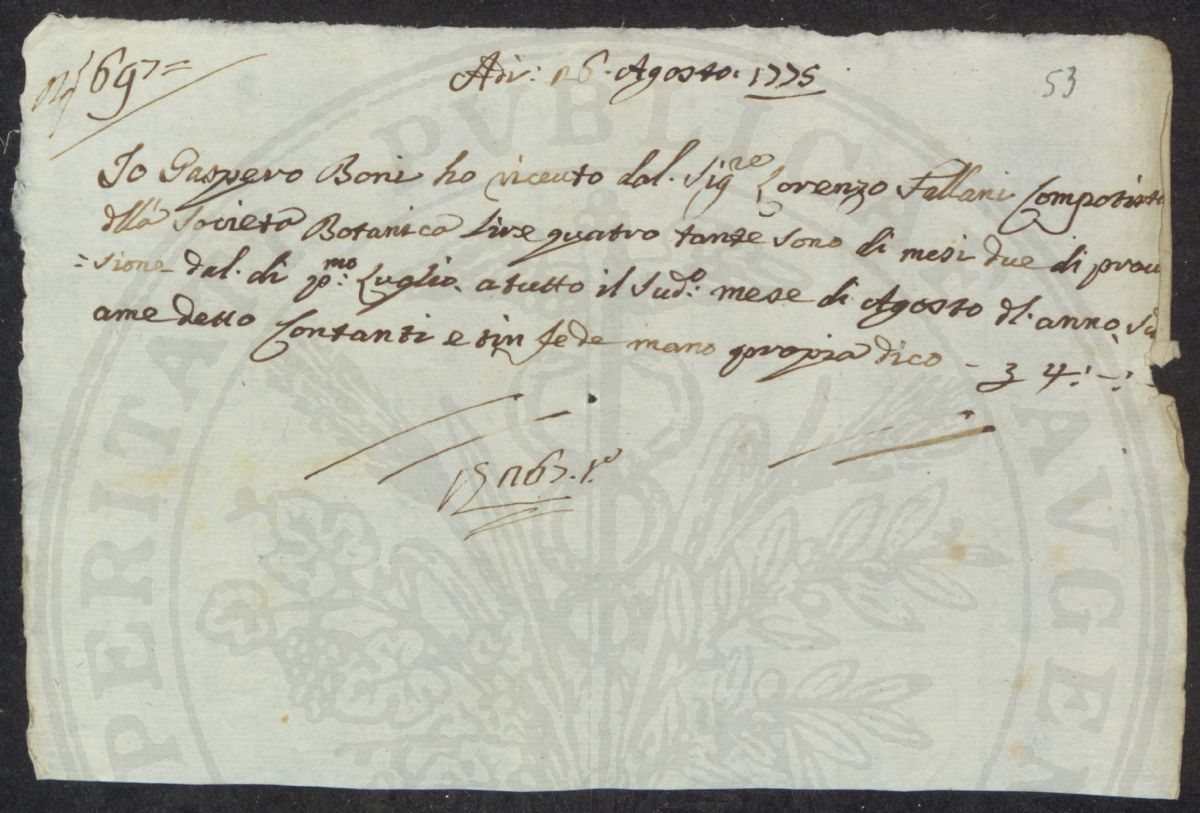 N.º 69=
Adi: 26. Agosto. 1775
53
Io Gaspero Boni ho riceuto dal. Sig.re Lorenzo Fallani Compotista
dlla Società Botanica Lire quatro tante sono di mesi due di prou
=sione dal. di p.mo Luglio. a tutto il Sud.o mese di Agosto dl. anno Su
ame detto Contanti e in fede mano propia dico - 4:-:-
PUBLICAE
PERITAT
AVGEN